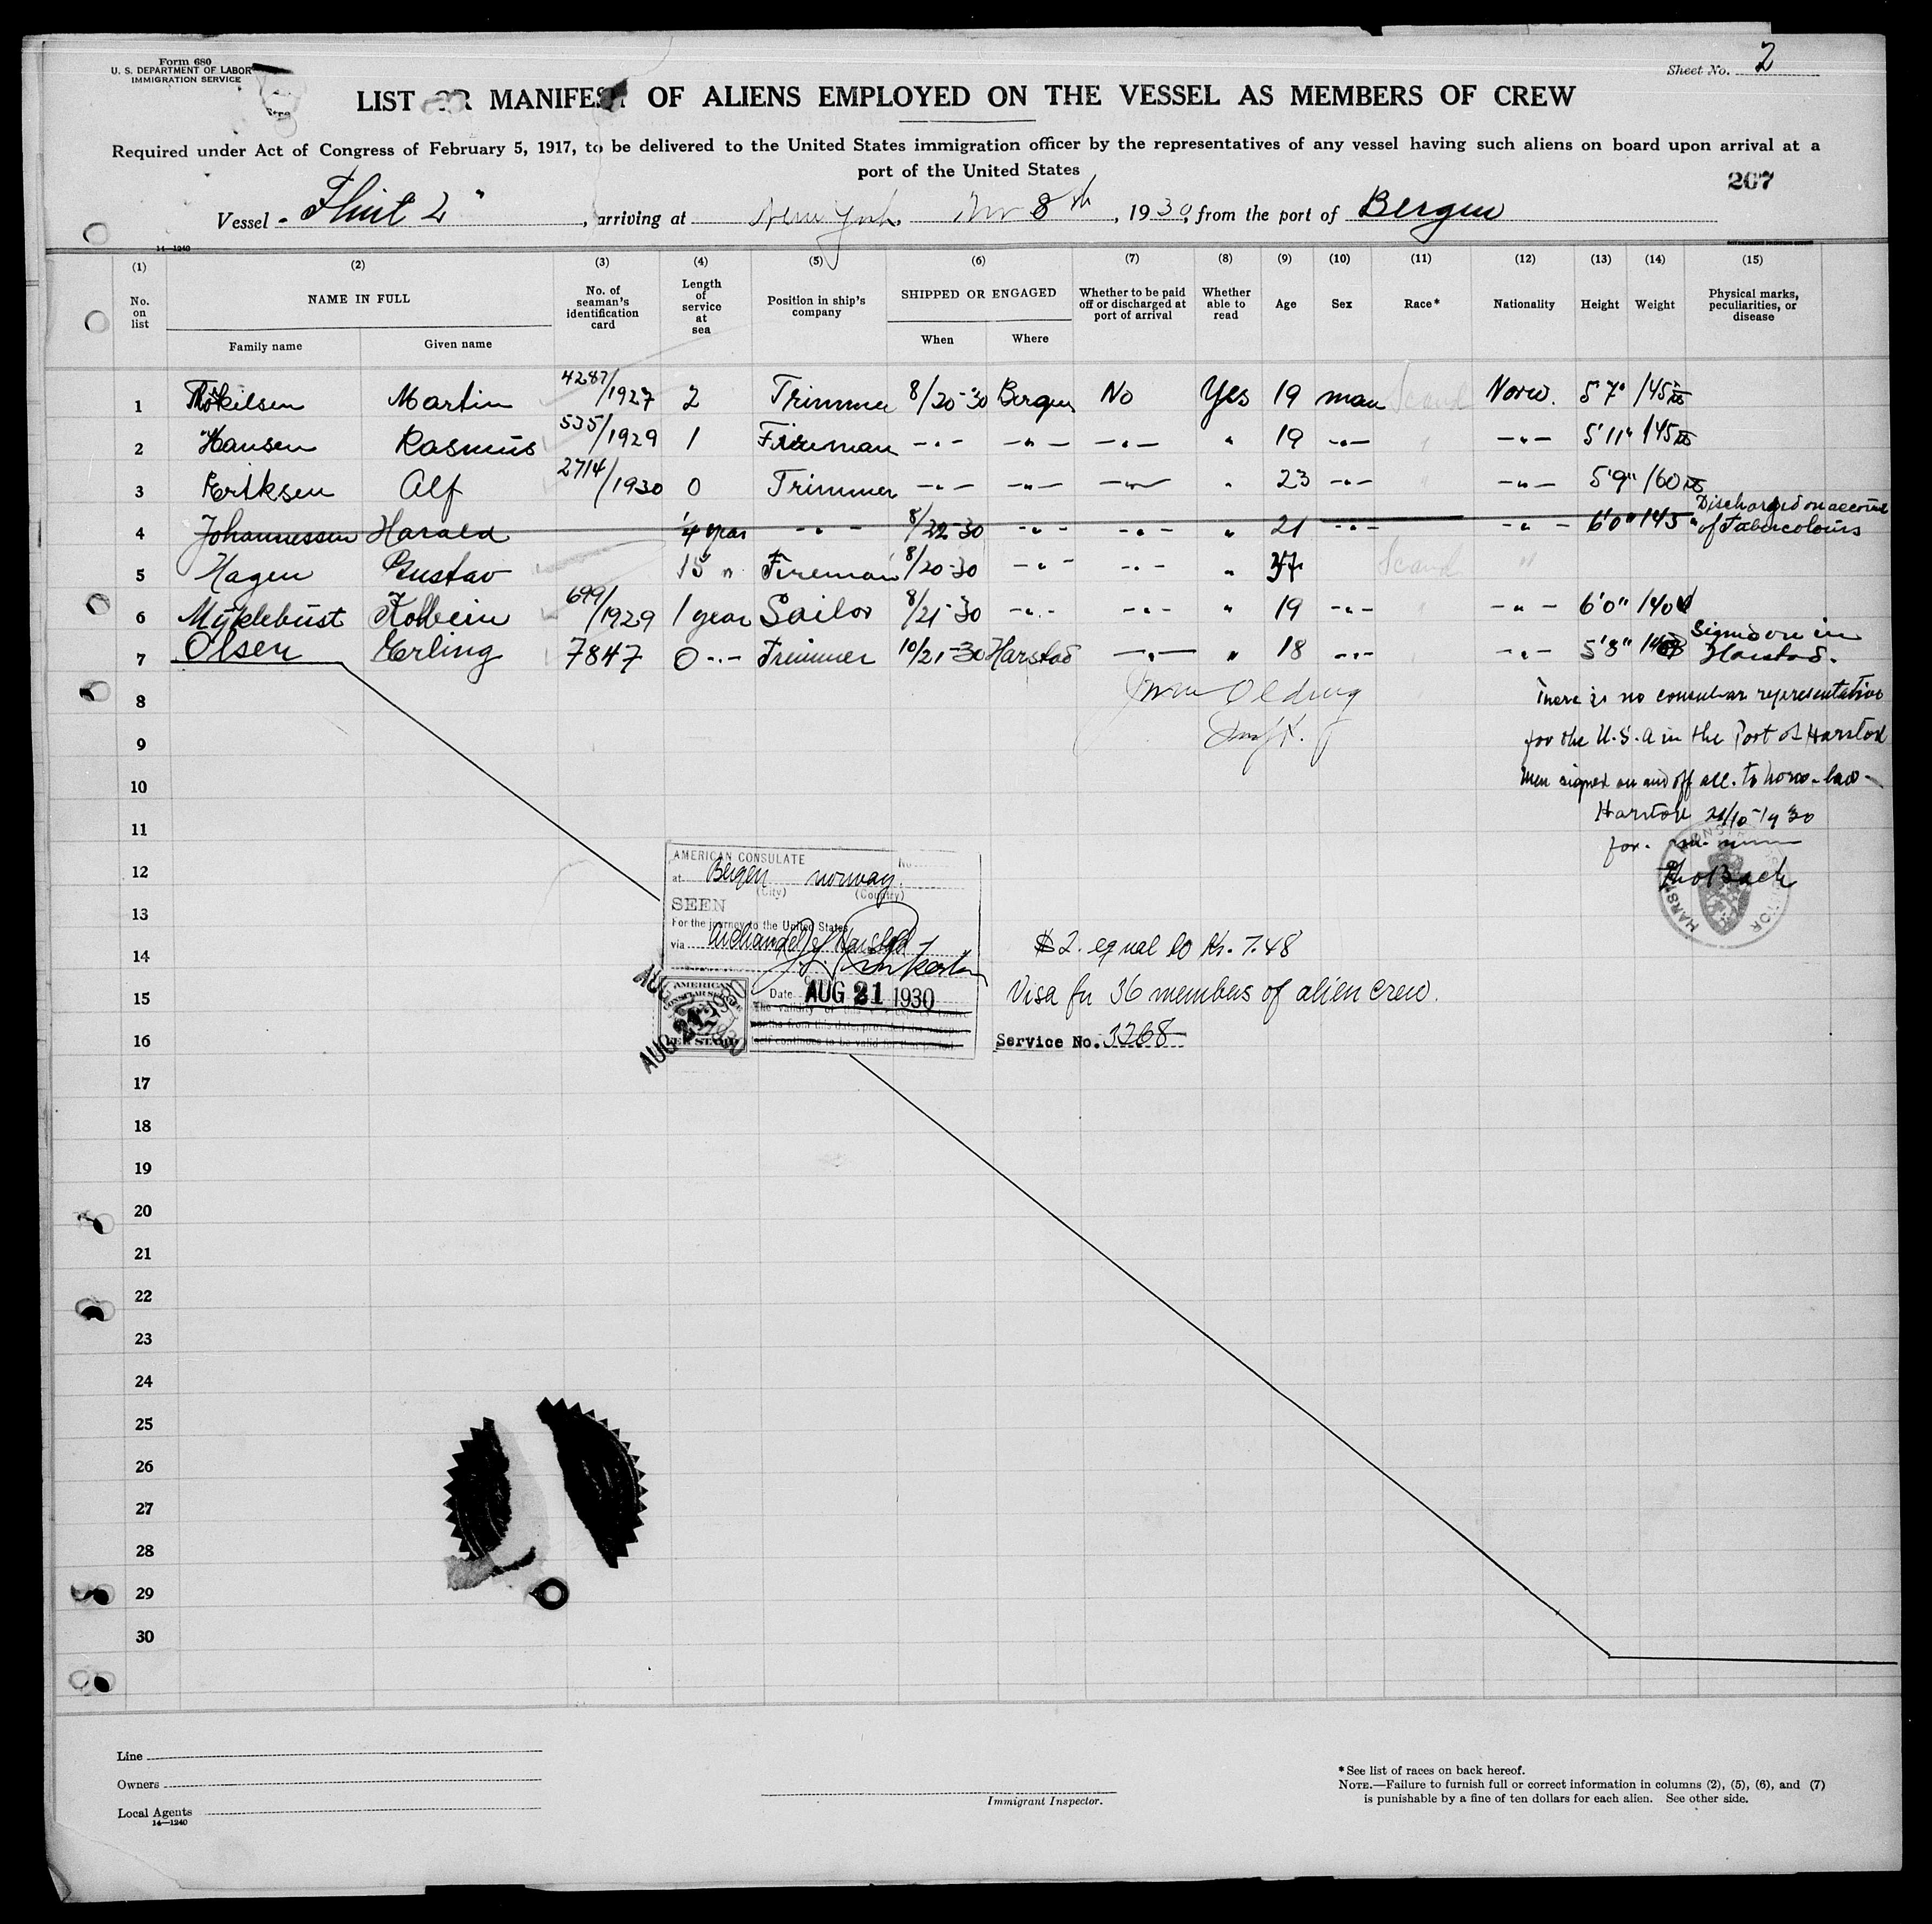 Form 680
U. S. DEPARTMENT OF LABOR
IMMIGRATION SERVICE
Sheet No. 2
LIST OR MANIFEST OF ALIENS EMPLOYED ON THE VESSEL AS MEMBERS OF CREW
Required under Act of Congress of February 5, 1917, to be delivered to the United States immigration officer by the representatives of any vessel having such aliens on board upon arrival at a
port of the United States
207
Vessel "Flint 2", arriving at New York Nov 8th, 1930, from the port of Bergen
14—1240
(1) (2) (3) (4) (5) (6) (7) (8) (9) (10) (11) (12) (13) (14) (15)
No. on list NAME IN FULL No. of seaman's identification card Length of service at sea Position in ship's company SHIPPED OR ENGAGED Whether to be paid off or discharged at port of arrival Whether able to read Age Sex Race* Nationality Height Weight Physical marks, peculiarities, or disease
Family name Given name When Where
1 Martin 4287/1927 2 Trimmer 8/20-30 Bergen No Yes 19 man Scand Norw. 5'7" 145 lbs
2 Hansen Rasmus 535/1929 1 Fireman -"- -"- -"- " 19 -"- " -"- 5'11" 145 lbs
3 Eriksen Alf 2714/1930 0 Trimmer -"- -"- -"- " 23 -"- " -"- 5'9" 160 lbs
4 Johannessen Harald 1/4 year -"- 8/22-30 -"- -"- " 21 -"- -"- 6'0" 145 " Discharged on account
of Tubercolouis
5 Hagen Gustav 15 " Fireman 8/20-30 -"- -"- " Scand "
6 Myklebust Kolbein 699/1929 1 year Sailor 8/21-30 -"- -"- " 19 -"- " -"- 6'0" 140
7 Olsen Erling 7847 0 -"- Trimmer 10/21-30 Harstad -"- " 18 -"- " -"- 5'8" Signed on in
Harstad.
8 There is no consular representative
9 for the U.S.A in the Port of Harstad
10 Men signed on and off acc. to norw. law
11 Harstad 21/10-1930
for.
12
13
14
15
16
17
18
19
20
21
22
23
24
25
26
27
28
29
30
AMERICAN CONSULATE No
at Bergen Norway.
(City) (Country)
SEEN
For the journey to the United States
via
Date AUG 21 1930
AMERICAN
CONSULAR SERVICE
FEE STAMP
AUG 21 1930
$2. equal to Kr. 7.48
Visa for 36 members of alien crew.
Service No. 3268
Line
Owners
Local Agents
14—1240
Immigrant Inspector.
* See list of races on back hereof.
NOTE.—Failure to furnish full or correct information in columns (2), (5), (6), and (7)
is punishable by a fine of ten dollars for each alien. See other side.